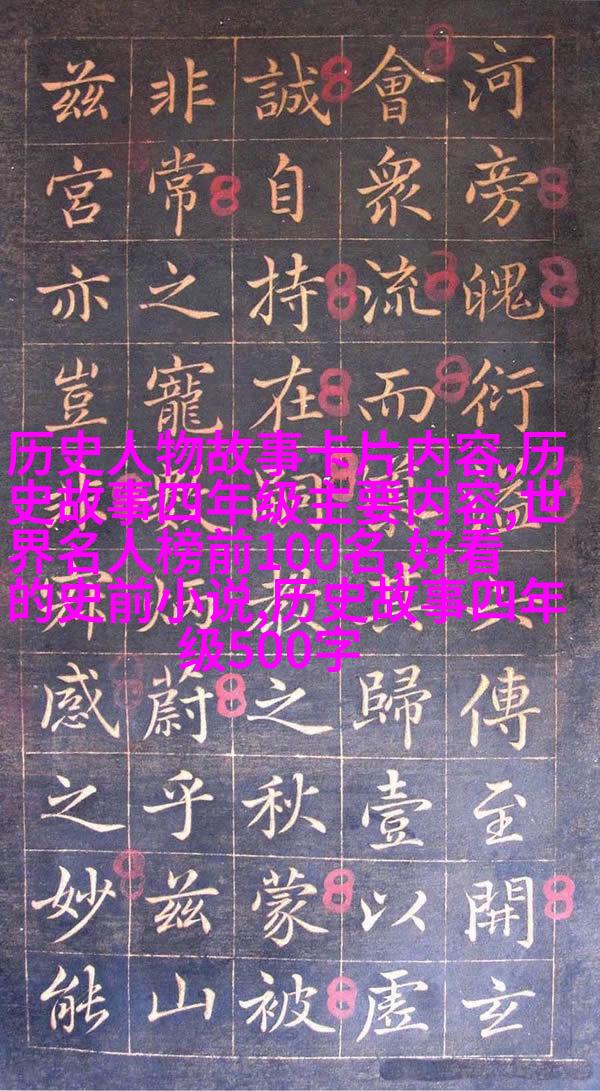 河旁魄衍傳至開玄
會衆流而歸壹以虛
誠自持在之秋蒙被
非常之寵蔚乎兹山
兹宮亦豈感之妙能
历史人物故事卡片内容,历
史故事四年级主要内容,世
界名人榜前100名,好看
的史前小说,历史故事四年
级500字